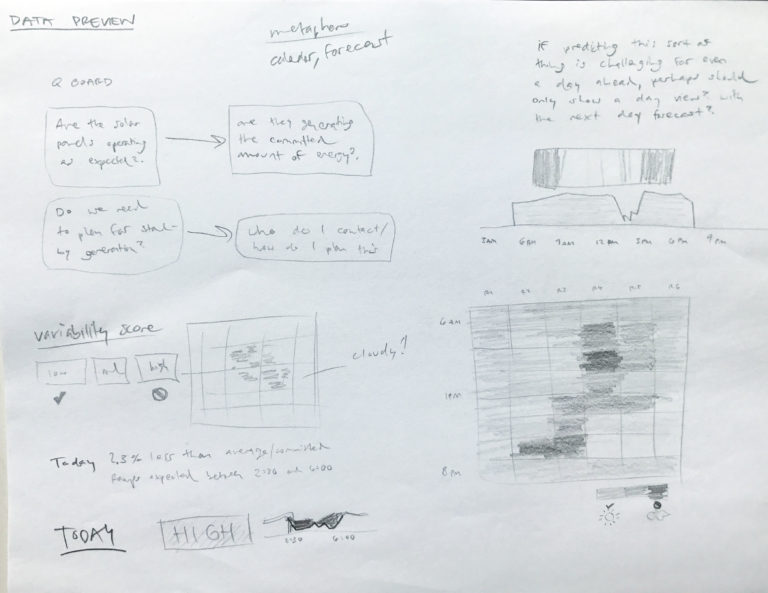 DATA PREVIEW
metaphors
calendar, forecast
Q BOARD
Are the solar
panels operating
as expected?
are they generating
the committed
amount of energy?
Do we need
to plan for stand-
by generation?
who do I contact/
how do I plan this
if predicting this sort of
thing is challenging for even
a day ahead, perhaps should
only show a day view? with
the next day forecast?
3AM 6AM 9AM 12PM 3PM 6PM 9PM
variability score
low med high
cloudy?
Today 2.3% less than average/committed
Range expected between 2:30 and 6:00
TODAY HIGH
2:30 6:00
6AM
1PM
8PM